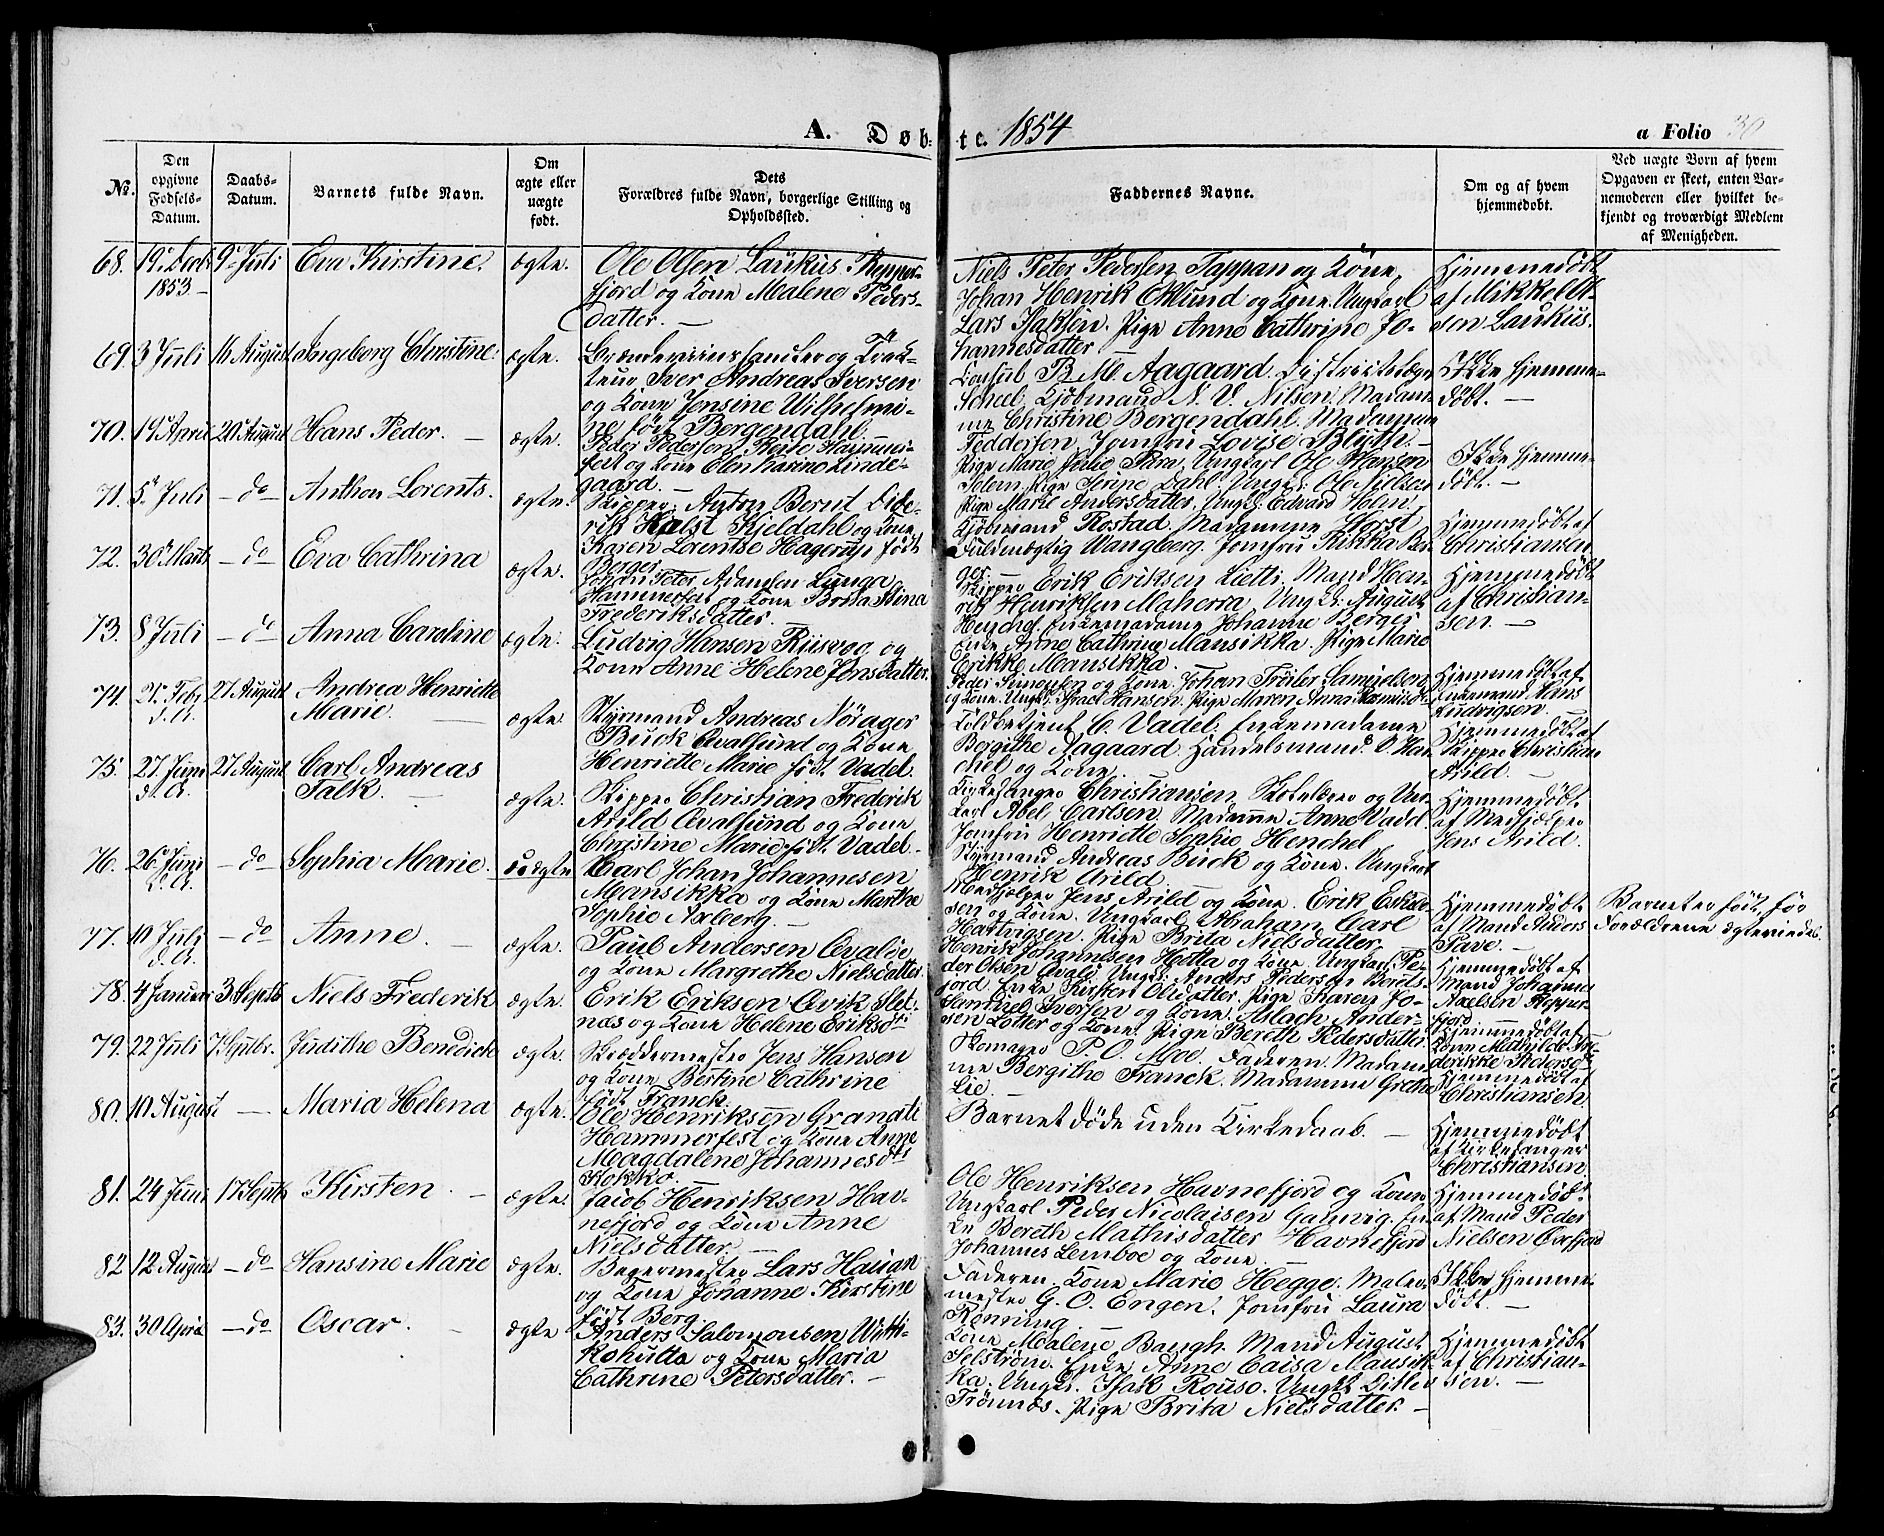 A. Døb-
te. 1854
a Folio 30
No.
Den opgivne Fødsels-Datum.
Daabs-Datum.
Barnets fulde Navn.
Om ægte eller uægte født.
Dets Forældres fulde Navn, borgerlige Stilling og Opholdssted.
Faddernes Navne.
Om og af hvem hjemmedøbt.
Ved uægte Børn af hvem Opgaven er skeet, enten Barnemoderen eller hvilket bekjendt og troværdigt Medlem af Menigheden.
68. 19. Decbr 1853 9. Juli Eva Kirstine. ægte.
Ole Olsen Laukus Repper-
fjord og Kone Malene Peders-
datter.
Niels Peter Pedersen Tappan og Kone,
Johan Henrik Eklund og Kone. Ungkarl
Lars Isaksen. Pige Anne Cathrine Jo-
hannesdatter
Hjemmedøbt
af Mikkel Ol-
sen Laukus.
69. 3 Juli 16 August Ingeborg Christine. ægte.
Brændeviinshandler og Trak-
teur Iver Andreas Iversen
og Kone Jensine Wilhelmi-
ne født Bergendahl.
Consul B. M. Aagaard. Districtslæge
Scheel. Kjøbmand N. V. Nilsen. Madam-
me Christine Bergendahl. Madamme
Feddersen. Jomfru Lovise Blyth.
Ikke hjemme-
døbt.
70. 19 April 20 August Hans Peder. ægte.
Peter Pedersen Hammer-
fest og Kone Elen Karine Linde-
gaard.
Pige Marie Julie Ungkarl Ole Hansen
Solem. Pige Serine Dahl. Ungk: Ole Nielsen
Pige Marie Andersdatter. Ungk: Edvard Holm.
Ikke hjemme-
døbt.
71. 5 Juli do Anthon Lorents. ægte.
Skipper Anton Bernt Dide-
rik Kjeldahl og Kone
Karen Lorentse Hagerup født
Berger
Kjøbmand Rostad. Madamme Horst
Fuldmægtig Wangberg. Jomfru Rikka Ber-
ger.
Hjemmedøbt af
Christiansen
72. 30 Marts do Eva Cathrina ægte.
Johan Peter Adamsen Lunga
Hammerfest og Kone Brita Stina
Frederiksdatter.
Skipper Erik Eriksen Lietti. Mand Hen-
rik Henriksen Maherra. Ungk: August
Heichel. Enkemadame Johanne Berger
Enke Anne Cathrine Mansikka. Pige Marie
Erikke Mansikka.
Hjemmedøbt
af Christian-
sen.
73. 8 Juli do Anna Caroline ægte.
Ludvig Hansen Riisvog og
Kone Anne Helene Jensdatter.
Peder Simonsen og Kone. Johan Samuelsen
og Kone. Ungk: Israel Hansen. Pige Maren Anna
Hjemmedøbt af
Enkemand Hans
Ludvigsen.
74. 25. Feb. d. A. 27 August Andrea Henriette
Marie. ægte.
Styrmand Andreas Nørager
Buck Qvalsund og Kone
Henriette Marie født Vadel.
Toldbetjent C. Vadel. Enkemadame
Bergithe Aagaard. Handelsmand O. Hen-
chel og Kone.
Hjemmedøbt af
Skipper Christian
Arild.
75. 27. Juni d. A. 27 August Carl Andreas
Falk. ægte.
Skipper Christian Frederik
Arild Qvalsund og Kone
Christine Marie født Vadel.
Kirkesanger Christiansen. Skolelærer og Ung-
karl Abel Carlsen. Madamme Anne Vadel.
Jomfru Henriette Sophie Henchel
Styrmand Andreas Buck og Kone. Ungkarl
Henrik Arild.
Hjemmedøbt
af Medhjelper
Jens Arild.
76. 26 Juni d. A. do Sophia Marie. uægte
Carl Johan Johannesen
Mansikka og Kone Marthe
Sophie Axberg.
Medhjelper Jens Arild og Kone. Erik
sen og Kone. Ungkarl Abraham Carl
Hartvigsen. Pige Brita Nielsdatter.
Hjemmedøbt
af Mand Anders
Pave.
Barnet er født før
Forældrene ægteviedes.
77. 10 Juli d. A. do Anne. ægte.
Paul Andersen Qvalø
og Kone Margrethe Nielsdatter.
Henrik Johannesen Hotta og Kone. Ungkarl Pe-
der Olsen Qvalø. Ungk: Anders Pedersen
fjord. Enke Kirsten Olsdatter. Pige Karen Jo-
Hjemmedøbt af
Mand Johannes
Axelsen Repper-
fjord
78. 4 Januar 3 Septb Niels Frederik ægte.
Erik Eriksen Qvik Slet-
næs og Kone Helene Eriksdtr
Samuel Iversen og Kone. Aslach Ander-
sen Lotter og Kone. Pige Bereth Pedersdatter.
Hjemmedøbt af
Kone Mathilde Fre-
derikke Pedersdtr
79. 22 Juli 7 Septbr. Judithe Benedicte ægte.
Skræddermester Jens Hansen
og Kone Bertine Cathrine
født Franck.
Skomager P. O. Moe. Faderen. Madam-
me Bergithe Franck. Madamme Grethe
Lie.
Hjemmedøbt af
Christiansen.
80. 10 August Maria Helena ægte.
Ole Henriksen Granati
Hammerfest og Kone Anne
Magdalene Johannesdtr
Kokko.
Barnet døde uden Kirkedaab.
Hjemmedøbt
af Kirkesanger
Christiansen
81. 24 Juni 17 Septb Kirsten. ægte.
Jacob Henriksen Hav-
nefjord og Kone Anne
Nielsdatter.
Ole Henriksen Havnefjord og Kone.
Ungkarl Peder Nicolaisen Gamvig. En-
ke Bereth Mathisdatter Havnefjord
Johannes Lemboe og Kone.
Hjemmedøbt
af Mand Peder
Nielsen Qvefjord
82 12 August do Hansine Marie ægte.
Bagermester Lars Haugan
og Kone Johanne Kirstine
født Berg.
Faderen. Kone Marie Hegge. Maler-
mester G. O. Engen. Jomfru Laura
Rønning
Ikke hjemme-
døbt.
83. 30 April do Oscar. ægte
Anders Salomonsen Witti-
kohutta og Kone Maria
Cathrine Petersdatter.
Kone Malene Baugh. Mand August
Selstrøm. Enke Anne Caisa Mansik-
ka. Ungk. Isak Rouso. Ungk. Ditlev
Trønnæs. Pige Brita Nielsdatter.
Hjemmedøbt
af Christian-
sen.